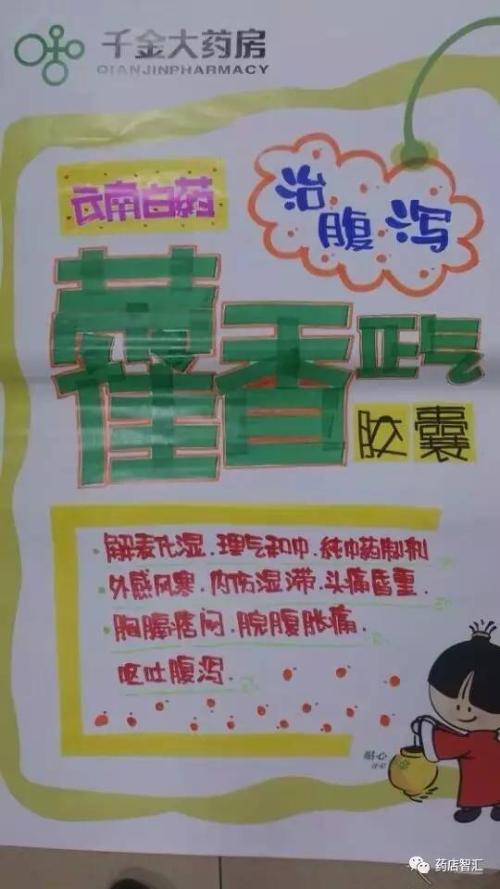 千金大药房
QIANJINPHARMACY
云南白药
治腹泻
藿香正气
胶囊
解表化湿.理气和中.纯中药制剂
外感风寒.内伤湿滞.头痛昏重.
胸膈痞闷.脘腹胀痛.
呕吐腹泻.
药店智汇